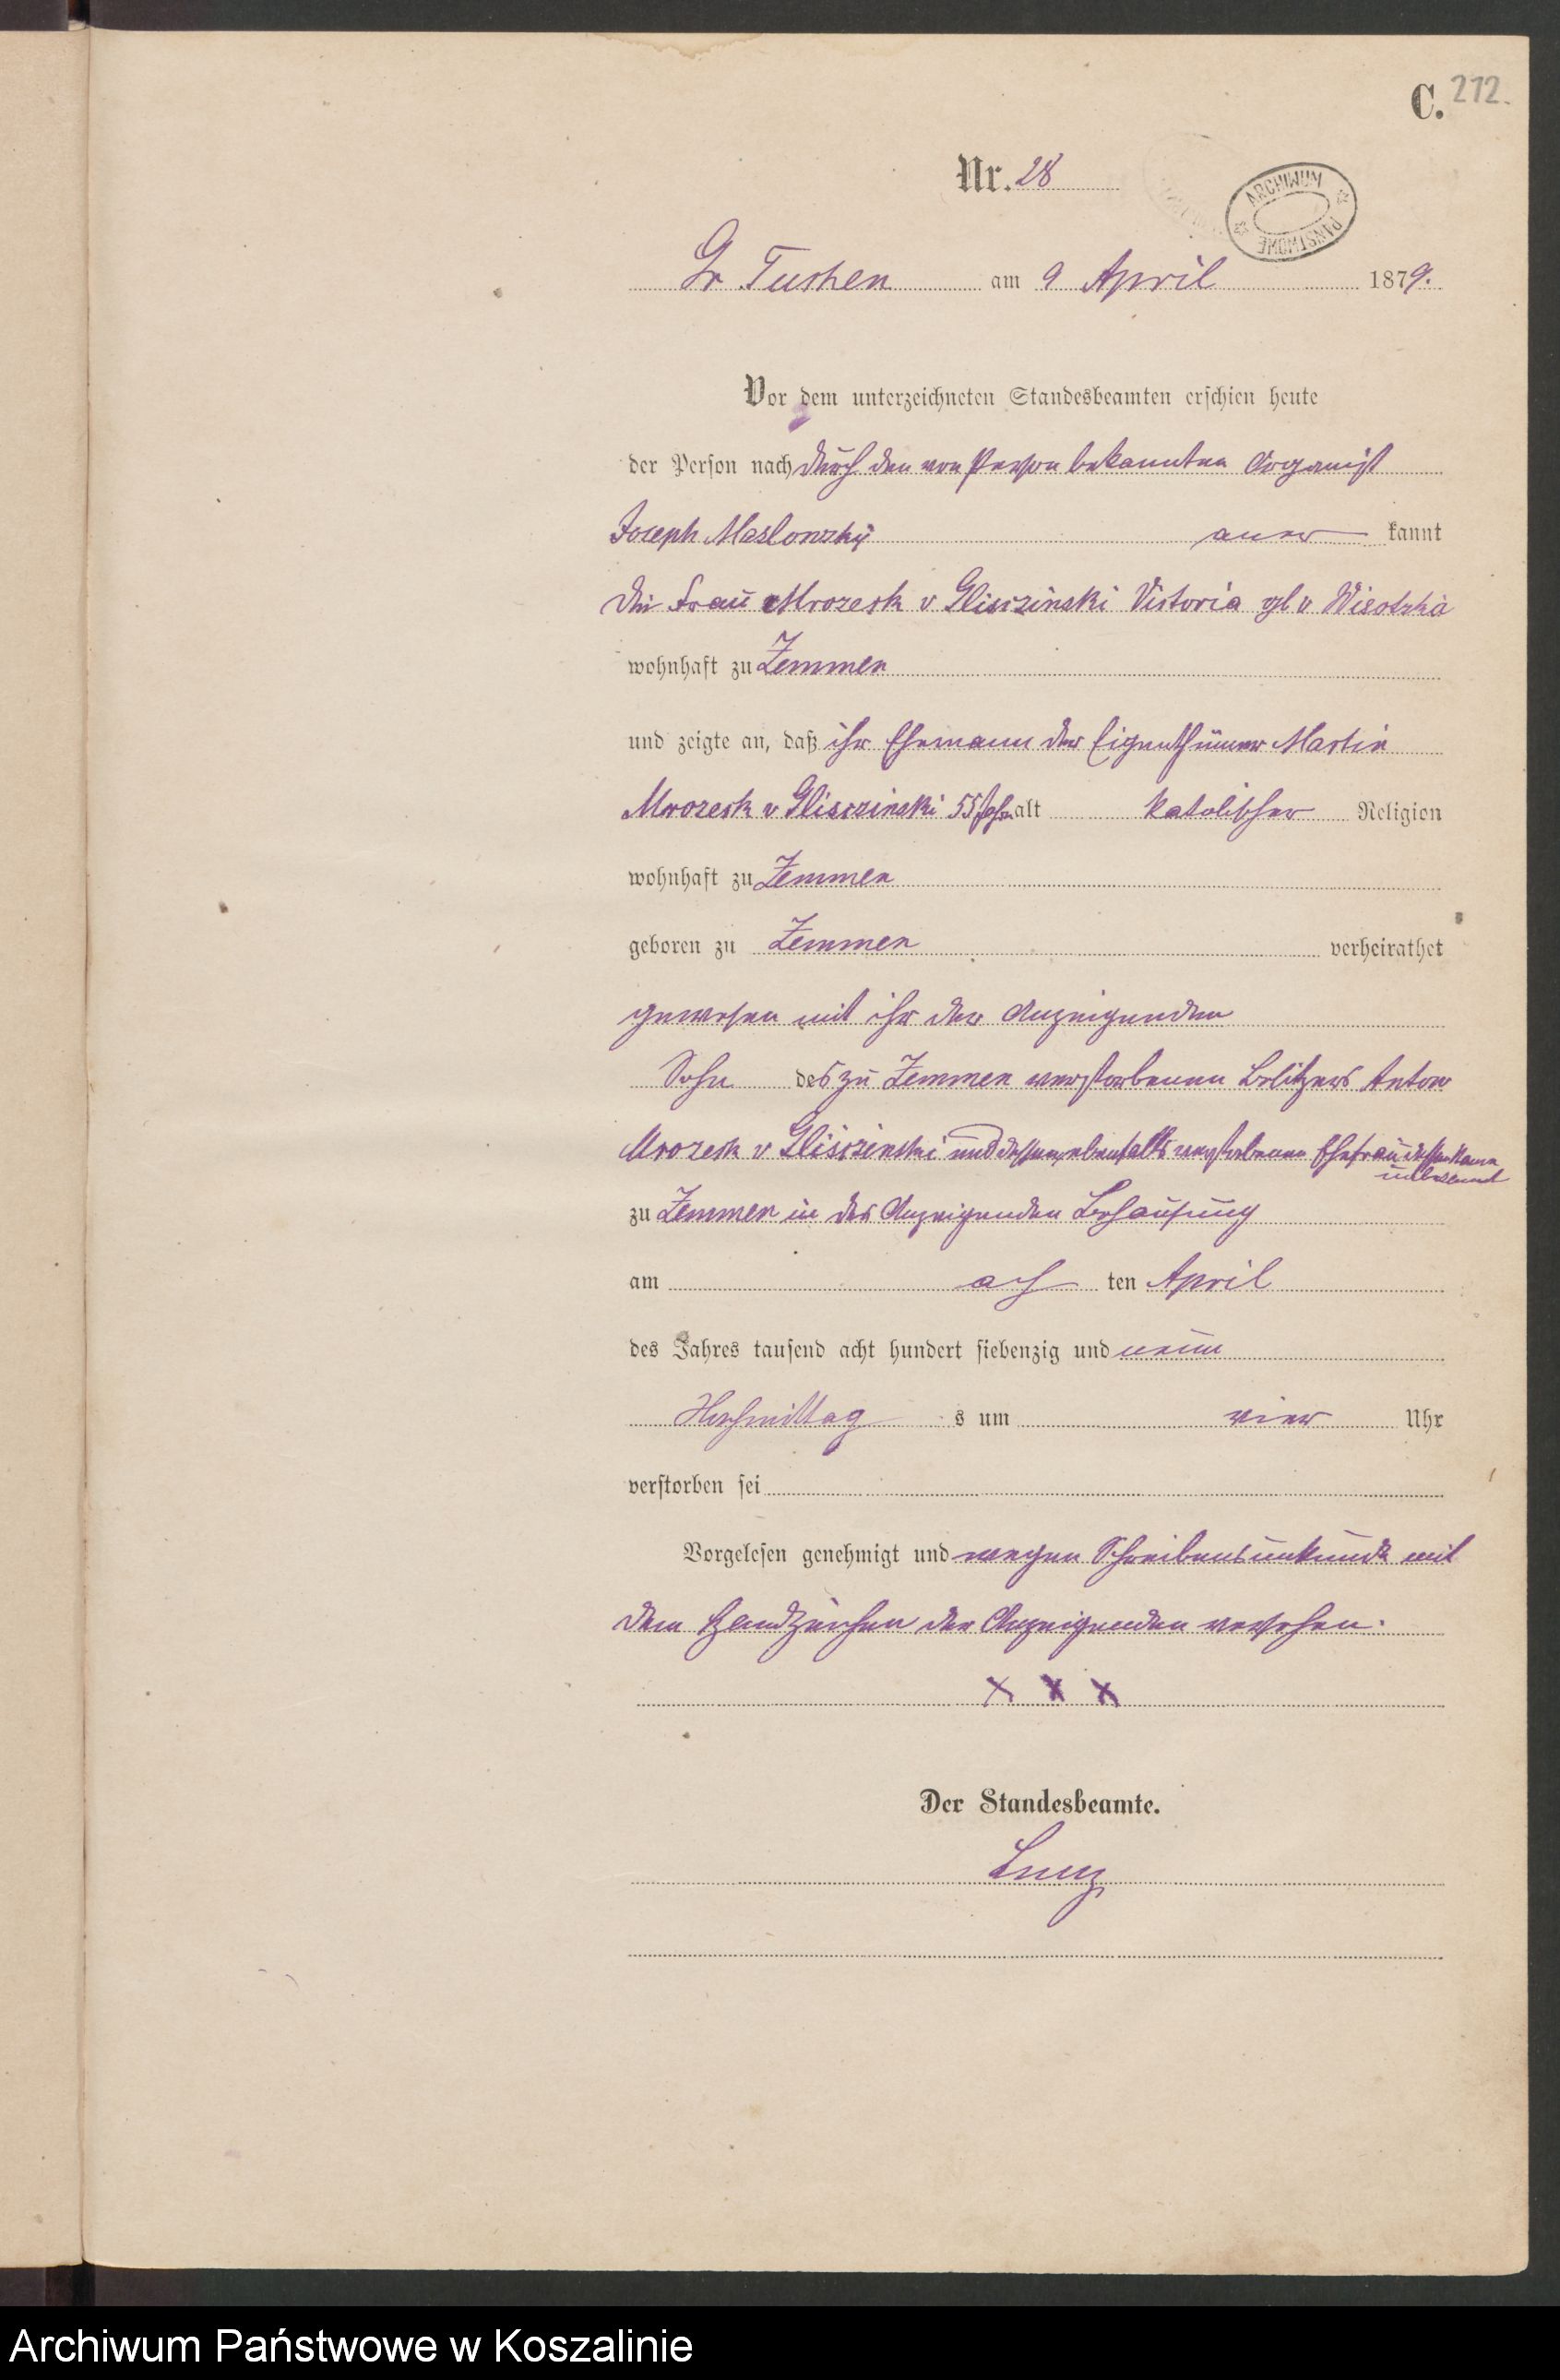 C. 212.
Nr. 28
ARCHIWUM PAŃSTWOWE
Gr Tuchen am 9 April 1879.
Vor dem unterzeichneten Standesbeamten erschien heute
der Person nach durch den von Person bekannten Organist
Joseph Maslonzky aner kannt
die Frau Mrozeck v Glisczinski Victoria gb v Wisotzka
wohnhaft zu Zemmen
und zeigte an, daß ihr Ehemann der Eigenthümer Martin
Mrozeck v Glisczinski 55 Jahr alt katolischer Religion
wohnhaft zu Zemmen
geboren zu Zemmen verheirathet
gewesen mit ihr der Anzeigenden
Sohn des zu Zemmen verstorbenen Besitzers Anton
Mrozeck v Glisczinski und dessen ebenfalls verstorbenen Ehefrau dessen Name
unbekannt
zu Zemmen in der Anzeigenden Behausung
am ach ten April
des Jahres tausend acht hundert siebenzig und neun
Nachmittag s um vier Uhr
verstorben sei
Vorgelesen genehmigt und wegen Schreibensunkunde mit
dem Handzeichen der Anzeigenden versehen.
x x x
Der Standesbeamte.
Archiwum Państwowe w Koszalinie